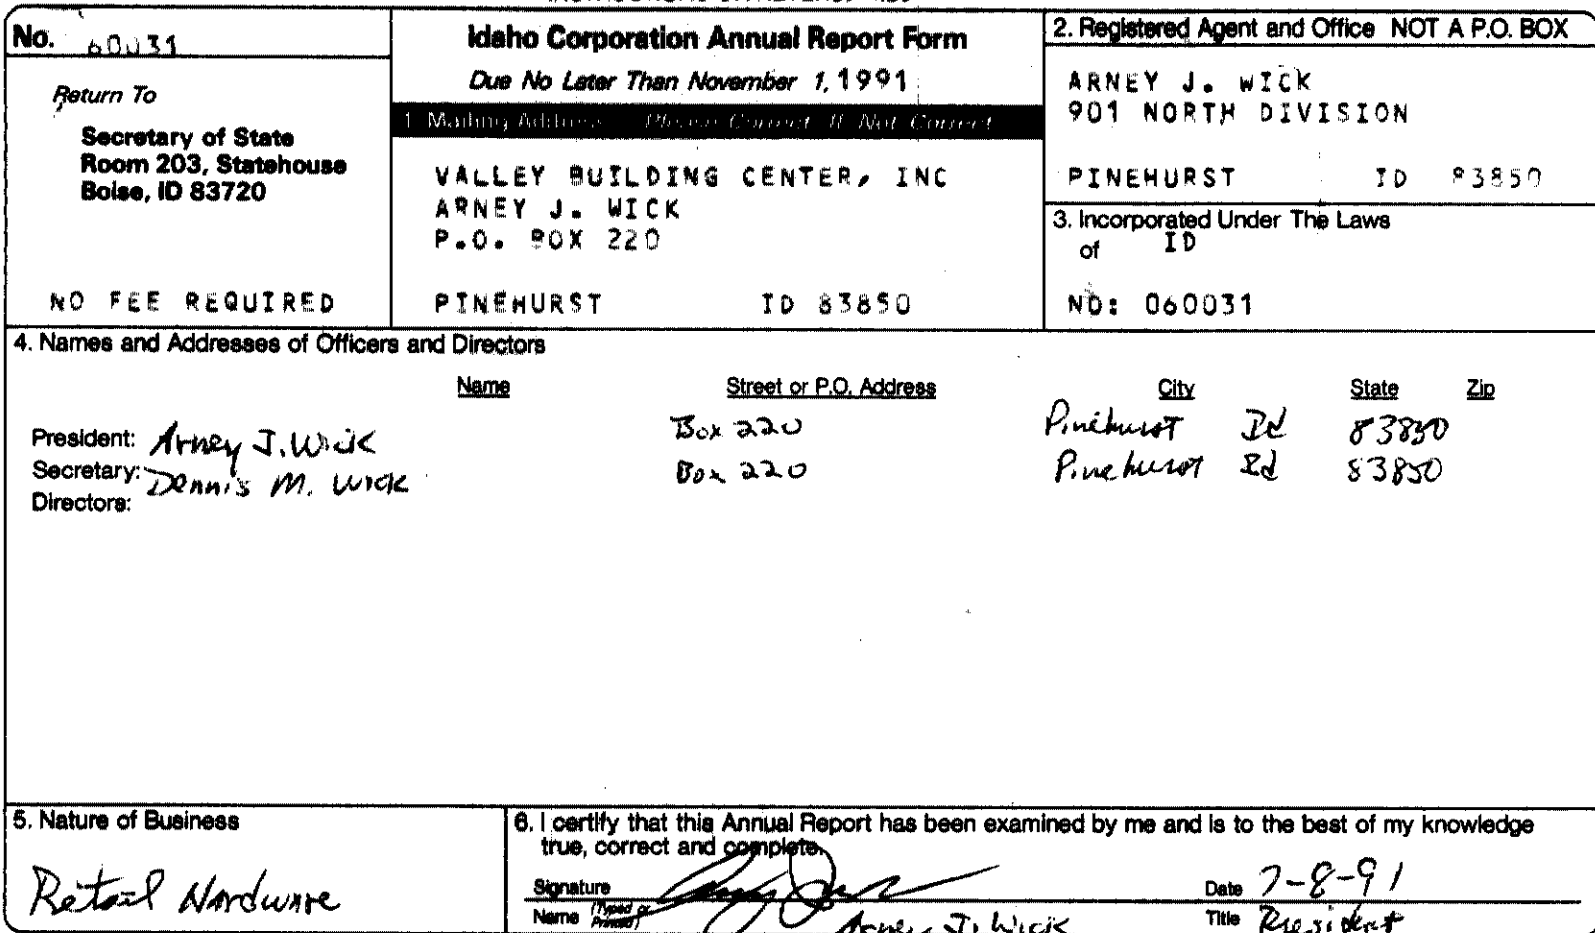 No. 60031
Return To
Secretary of State
Room 203, Statehouse
Boise, ID 83720
NO FEE REQUIRED
Idaho Corporation Annual Report Form
Due No Later Than November 1, 1991
1. Mailing Address Please Correct If Not Correct
VALLEY BUILDING CENTER, INC
ARNEY J. WICK
P.O. BOX 220
PINEHURST ID 83850
2. Registered Agent and Office NOT A P.O. BOX
ARNEY J. WICK
901 NORTH DIVISION
PINEHURST ID 83850
3. Incorporated Under The Laws
of ID
NO: 060031
4. Names and Addresses of Officers and Directors
Name Street or P.O. Address City State Zip
President: Arney J. Wick Box 220 Pinehurst Id 83850
Secretary: Dennis M. Wick Box 220 Pinehurst Id 83850
Directors:
5. Nature of Business
Retail Hardware
6. I certify that this Annual Report has been examined by me and is to the best of my knowledge
true, correct and complete.
Signature Date 7-8-91
Name (Typed or Printed) Arney J. Wick Title President